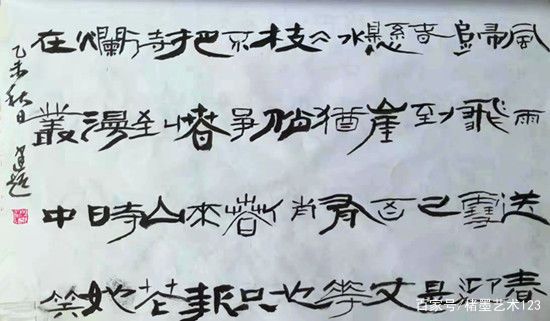 風雨送春
歸飛雪迎
春到已是
懸崖百丈
冰猶有華
枝俏俏也
不爭春只
把春來報
待至山花
爛漫時她
在叢中笑
乙未秋日
題
百家号/楮墨艺术123